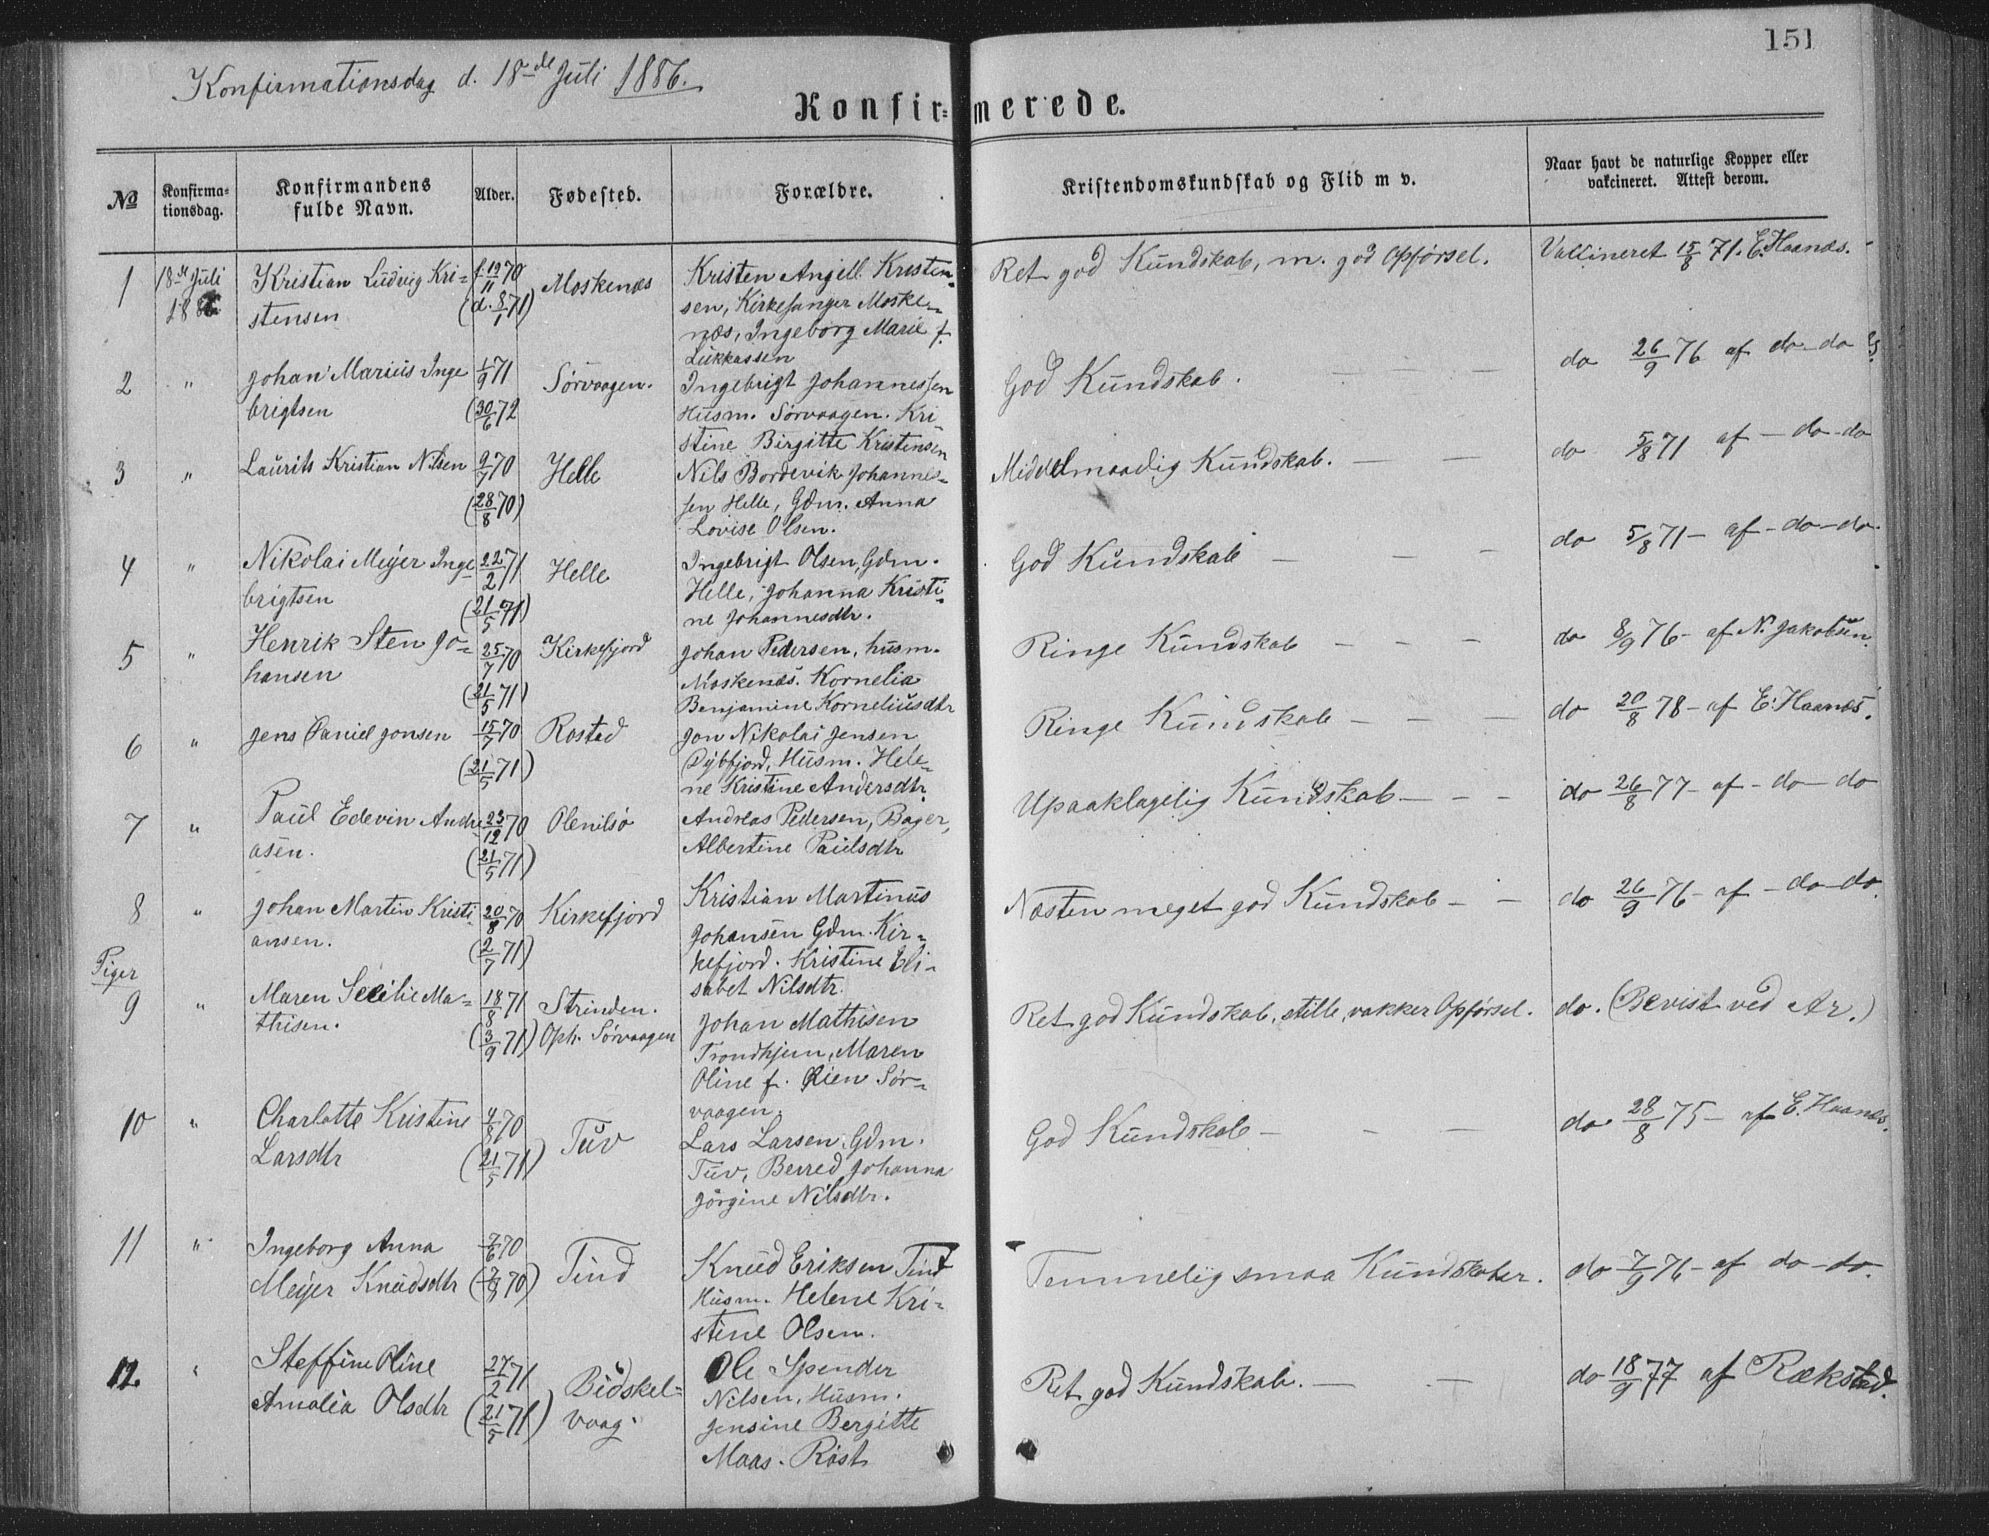 151
Konfirmationsdag d. 18de Juli 1886.
Konfir= merede.
No
Konfirma=
tionsdag.
Konfirmandens
fulde Navn.
Alder.
Fødested.
Forældre.
Kristendomskundskab og Flid m v.
Naar havt de naturlige Kopper eller
vakcineret. Attest derom.
1 18de Juli
1886
Kristian Ludvig Kri-
stensen
f. 19/11 70
(d. 8/1 71)
Moskenæs
Kristen Angell Kristen-
sen, Kirkesanger Moske-
næs, Ingeborg Marie f.
Lukkassen
Ret god Kundskab, m. god Opførsel.
Vaccineret 15/8 71. E. Haanæs.
2 "
Johan Marius Inge
brigtsen
1/9 71
(30/6 72
Sørvaagen.
Ingebrigt Johannessen
Husm. Sørvaagen. Kri
stine Birgitte Kristensen
God Kundskab. — —
do 26/9 76 af do - do
3 "
Laurits Kristian Nilsen
9/7 70
(28/8 70)
Helle
Nils Bordevik Johannes-
sen Helle, Gdm. Anna
Lovise Olsen.
Middelmaadig Kundskab. — —
do 5/8 71 af — do - do
4 "
Nikolai Meyer Inge
brigtsen
22/2 71
(21/5 71)
Helle
Ingebrigt Olsen, Gdm.
Helle, Johanna Kristi-
ne Johannesdtr.
God Kundskab — — —
do 5/8 71 — af — do - do.
5 "
Henrik Sten Jo-
hansen
25/7 70
(21/5 71)
Kirkefjord
Johan Pedersen, husm.
Moskenæs. Kornelia
Benjamine Korneliusdtr
Ringe Kundskab — — —
do 8/9 76 — af N. Jakobsen.
6 "
Jens Daniel Jonsen
15/7 70
(21/5 71)
Rostad
Jon Nikolai Jensen
Dybfjord, Husm. Hele-
ne Kristine Andersdtr.
Ringe Kundskab — — —
do 20/8 78 — af E. Haanæs.
7 "
Paul Edevin Andre
asen.
23/12 70
(21/5 71)
Olenilsø
Andreas Pedersen, Bager,
Albertine Paulsdtr
Upaaklagelig Kundskab — — —
do 26/8 77 — af — do — do
8 "
Johan Martin Kristi
ansen.
20/8 70
(2/7 71)
Kirkefjord
Kristian Martinus
Johansen Gdm. Kir-
kefjord. Kristine Eli-
sabet Nilsdtr.
Næsten meget god Kundskab — —
do 26/9 76 — af — do - do.
Piger
9 "
Maren Secilie Ma-
thisen.
18/8 71
(3/9 71)
Strinden.
Oph. Sørvaagen
Johan Mathisen
Trondhjem, Maren
Oline f. Rien Sør-
vaagen.
Ret god Kundskab, stille, vakker Opførsel.
do. (Bevist ved Ar.)
10 "
Charlotte Kristine
Larsdtr
4/8 70
(21/5 71)
Tuv
Lars Larsen Gdm.
Tuv, Berred Johanna
Jörgine Nilsdtr.
God Kundskab — — —
do 28/8 75 — af E. Haanæs.
11 "
Ingeborg Anna
Meyer Knudsdtr
7/6 70
(7/8 70)
Tind
Knud Eriksen Tind
Husm. Helene Kri-
stine Olsen.
Temmelig smaa Kundskaber.
do 7/9 76 — af do - do.
12. "
Steffine Oline
Amalia Olsdtr
27/2 71
(21/5 71)
Bidskel-
vaag.
Ole Spender
Nilsen, Husm.
Jensine Bergitte
Maas. Röst
Ret god Kundskab. — —
do 18/9 77 af Rækstad.